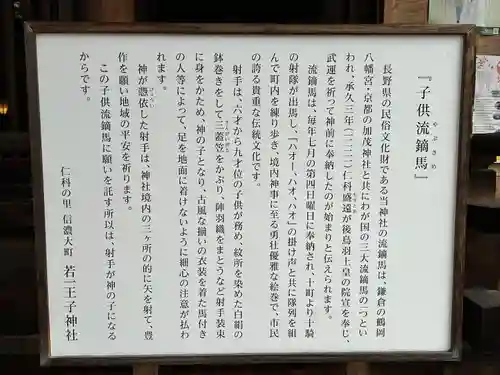 『子供流鏑馬』
やぶさめ
長野県の民俗文化財である当神社の流鏑馬は、鎌倉の鶴岡
八幡宮・京都の加茂神社と共にわが国の三大流鏑馬の一つとい
われ、承久三年(一二二一)仁科盛遠が後鳥羽上皇の院宣を奉じ、
武運を祈って神前に奉納したのが始まりと伝えられます。
流鏑馬は、毎年七月の第四日曜日に奉納され、十町より十騎
の射隊が出馬し、「ハオー、ハオ、ハオ」の掛け声と共に隊列を組
んで町内を練り歩き、境内神事に至る勇壮優雅な絵巻で、市民
の誇る貴重な伝統文化です。
射手は、六才から九才位の子供が務め、紋所を染めた白絹の
鉢巻きをして三蓋笠をかぶり、陣羽織をまとうなど射手装束
に身をかため、神の子となり、古風な揃いの衣装を着た馬付き
の人等によって、足を地面に着けないように細心の注意が払わ
れます。
神が憑依した射手は、神社境内の三ヶ所の的に矢を射て、豊
作を願い地域の平安を祈ります。
この子供流鏑馬に願いを託す所以は、射手が神の子になる
からです。
仁科の里 信濃大町 若一王子神社